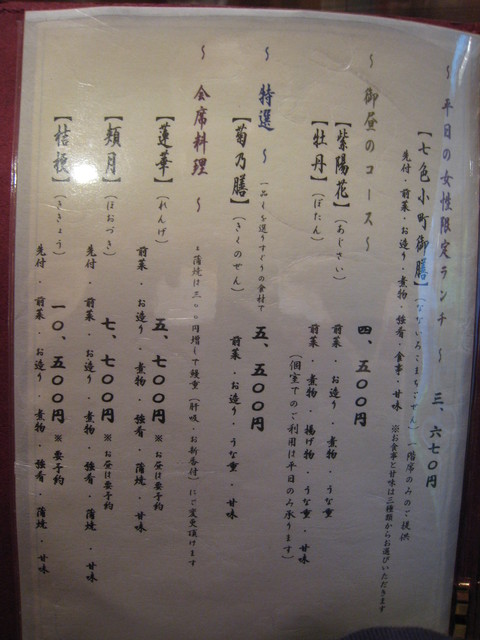 ～ 平日の女性限定ランチ ～
【七色小町御膳】(なないろこまちごぜん) 一階席のみのご提供
三、六七〇円
先付・前菜・お造り・煮物・強肴・食事・甘味
※お食事と甘味は三種類からお選びいただきます
～ 御昼のコース ～
【紫陽花】(あじさい)
前菜・お造り・煮物・うな重
四、五〇〇円
【牡丹】(ぼたん)
前菜・煮物・揚げ物・うな重・甘味
(個室でのご利用は平日のみ承ります)
～ 特選 ～ 一品一品を選りすぐりの食材で
五、五〇〇円
【菊乃膳】(きくのぜん)
前菜・お造り・うな重・甘味
～ 会席料理 ～
円増しで鰻重(肝吸・お新香付)にご変更頂けます
【蓮華】(れんげ) 五、七〇〇円 ※お昼は要予約
前菜・お造り・煮物・強肴・蒲焼・甘味
【頬月】(ほおづき) 七、七〇〇円 ※お昼は要予約
先付・前菜・お造り・煮物・強肴・蒲焼・甘味
【桔梗】(ききょう) 一〇、五〇〇円 ※要予約
先付・前菜・お造り・煮物・強肴・蒲焼・甘味